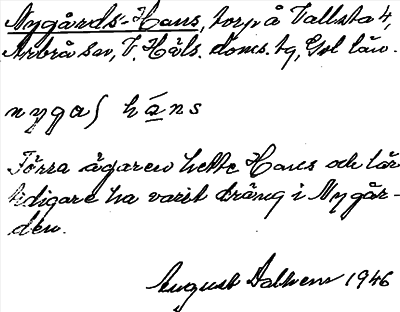 Nygårds-Hans, torp å Vallsta 4,
Arbrå sn, V. Häls. doms. tg, Gvl län.
nygaʃ háns
Förra ägaren hette Hans och lär
tidigare ha varit dräng i Nygår-
den.
August Dalhem 1946